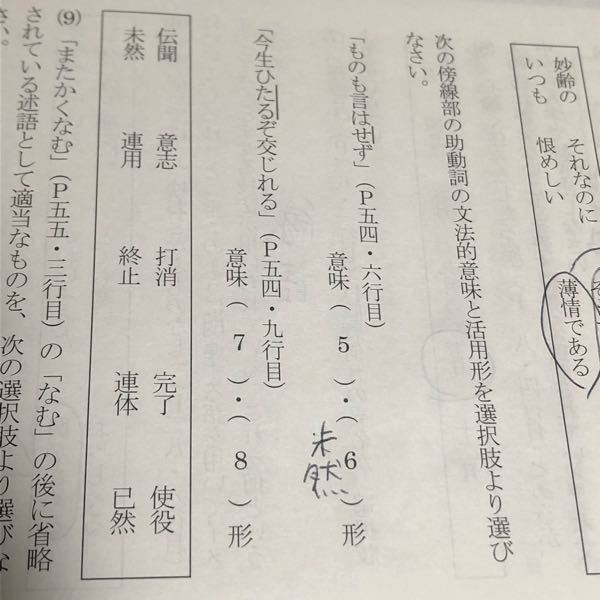 妙齢の　それなのに
いつも　恨めしい　薄情である
次の傍線部の助動詞の文法的意味と活用形を選択肢より選び
なさい。
「ものも言はせず」(P五四・六行目)
意味(　5　)・(　6　)形
未然
「今生ひたるぞ交じれる」(P五四・九行目)
意味(　7　)・(　8　)形
伝聞　意志　打消　完了　使役
未然　連用　終止　連体　已然
(9)「またかくなむ」(P五五・三行目)の「なむ」の後に省略
されている述語として適当なものを、次の選択肢より選びな
さい。